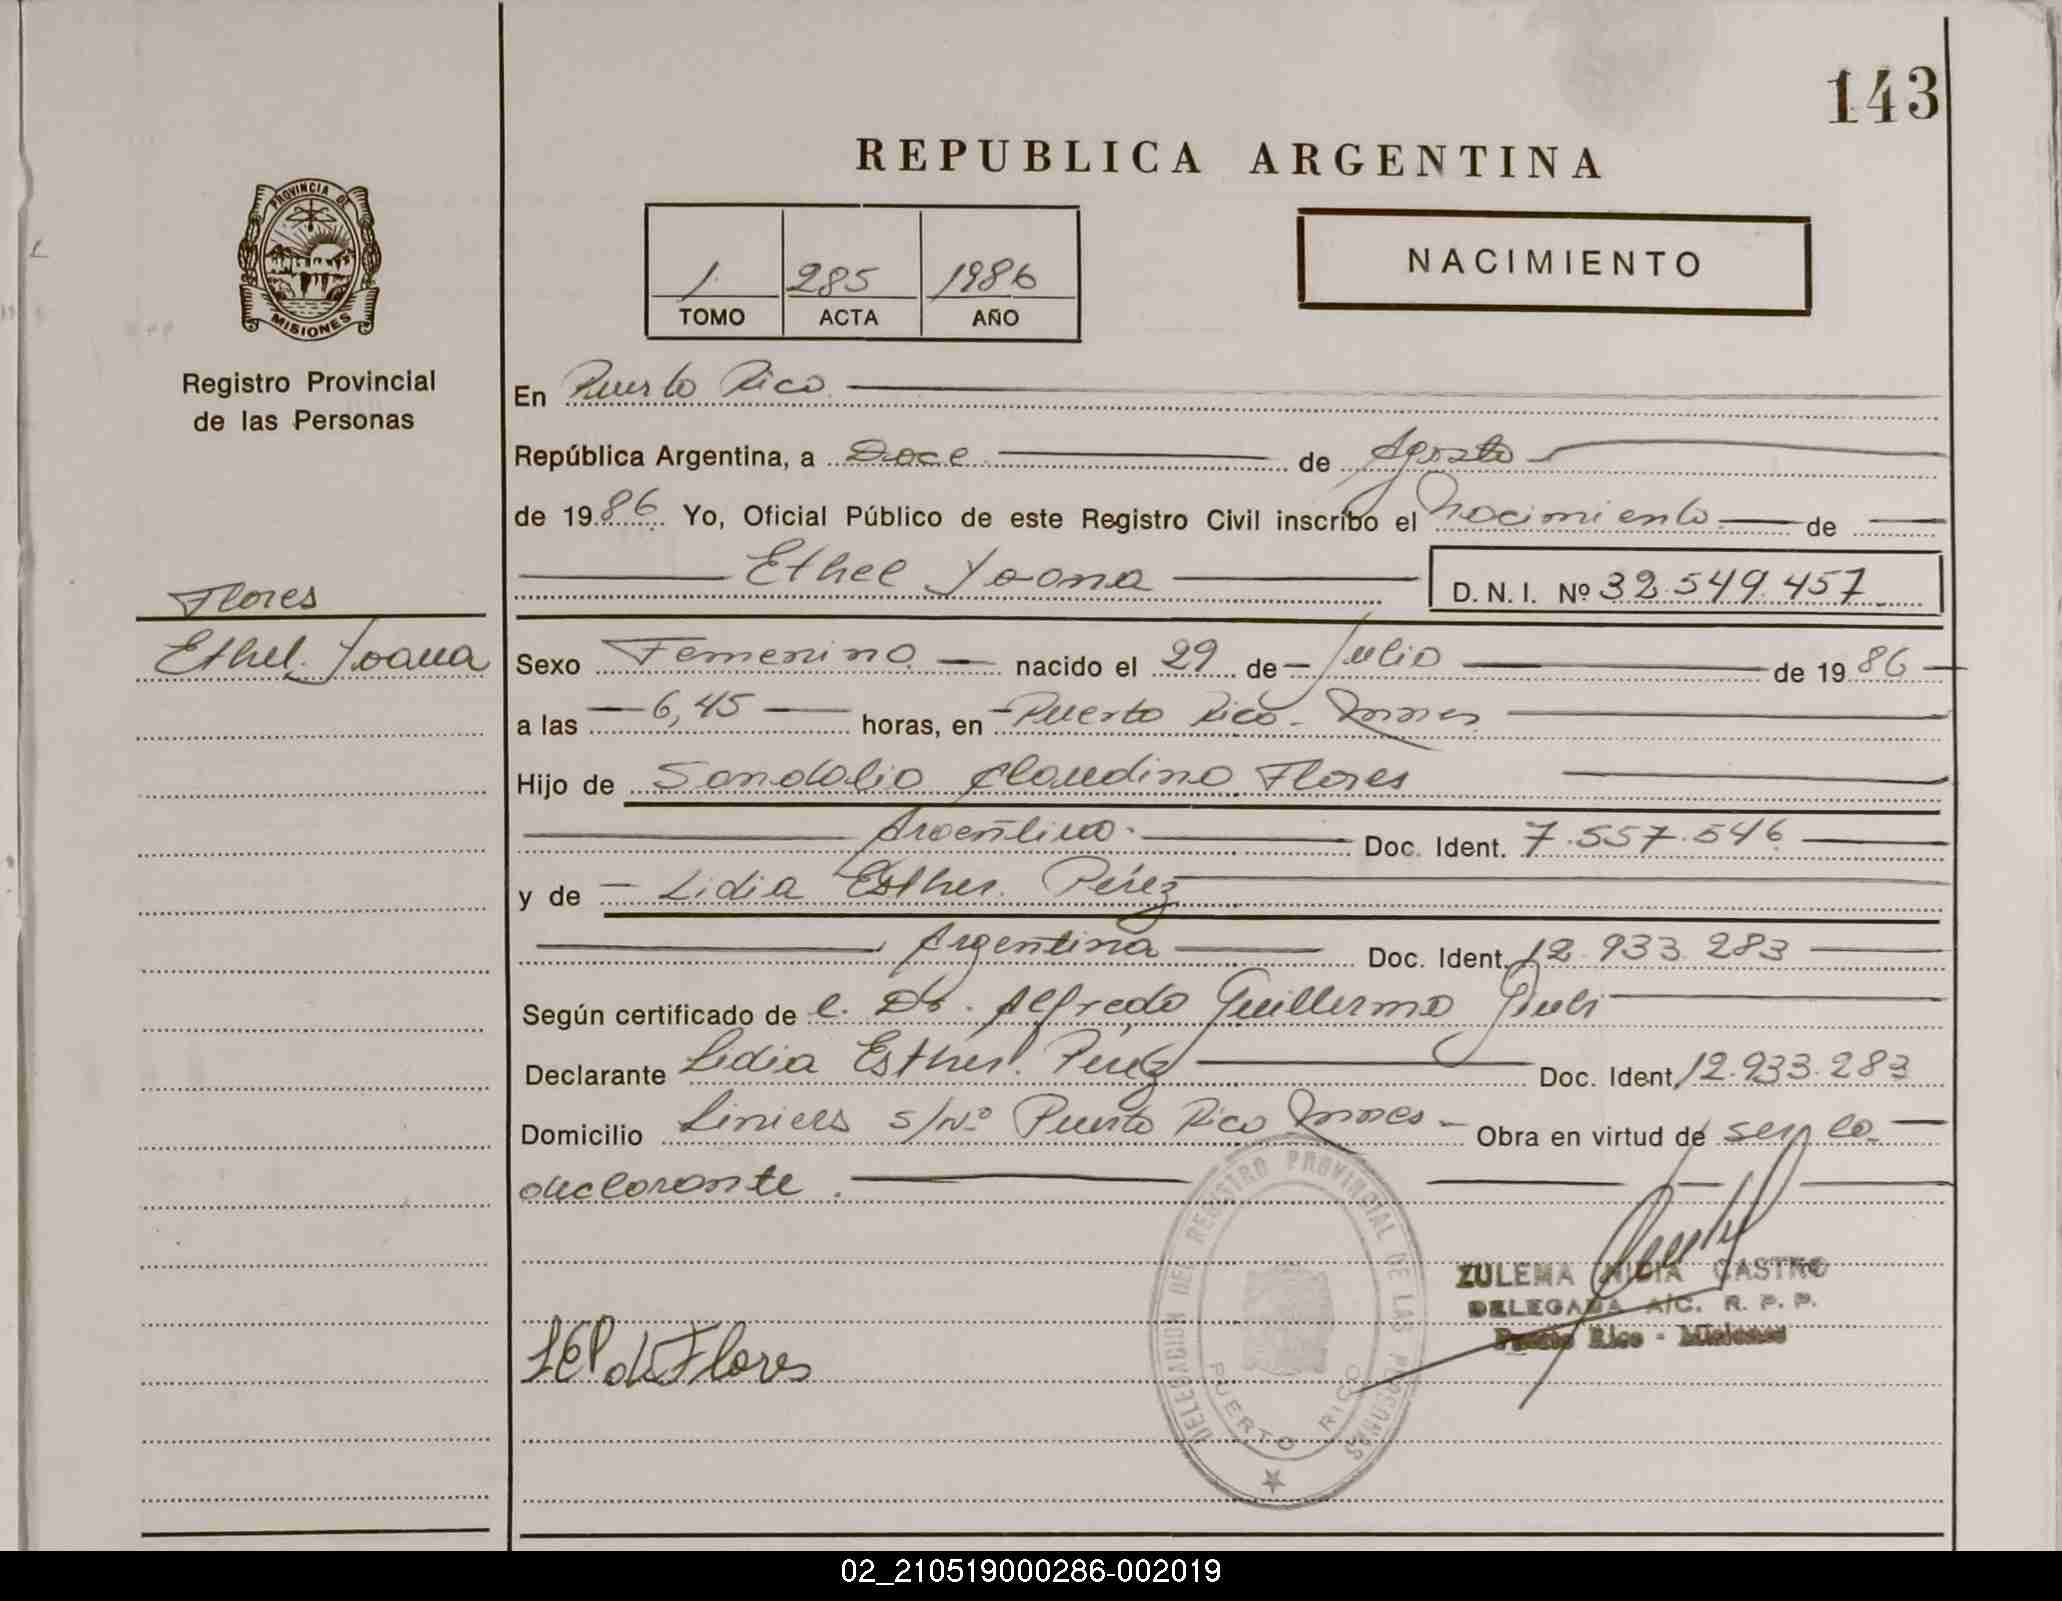 143
REPUBLICA ARGENTINA
PROVINCIA DE
MISIONES
Registro Provincial
de las Personas
1. 285 1986
TOMO ACTA AÑO
NACIMIENTO
En Puerto Rico
República Argentina, a Doce de Agosto
de 1986 Yo, Oficial Público de este Registro Civil inscribo el Nacimiento de
Ethel Yoana
D. N. I. Nº 32.549.457
Flores
Ethel Yoana
Sexo Femenino nacido el 29 de Julio de 1986
a las 6,45 horas, en Puerto Rico - Mnes
Hijo de Sandalio Claudino Flores
Argentino. Doc. Ident. 7.557.546
y de Lidia Esther Pérez
Argentina Doc. Ident. 12.933.283
Según certificado de e. Dr. Alfredo Guillermo
Declarante Lidia Esther Pérez Doc. Ident. 12.933.283
Domicilio Liniers s/Nº Puerto Rico Mnes - Obra en virtud de ser la
declarante.
DELEGACION DEL REGISTRO PROVINCIAL DE LAS PERSONAS
PUERTO RICO
ZULEMA NIDIA CASTRO
DELEGADA A/C. R. P. P.
Puerto Rico - Misiones
LEP de Flores
02_210519000286-002019